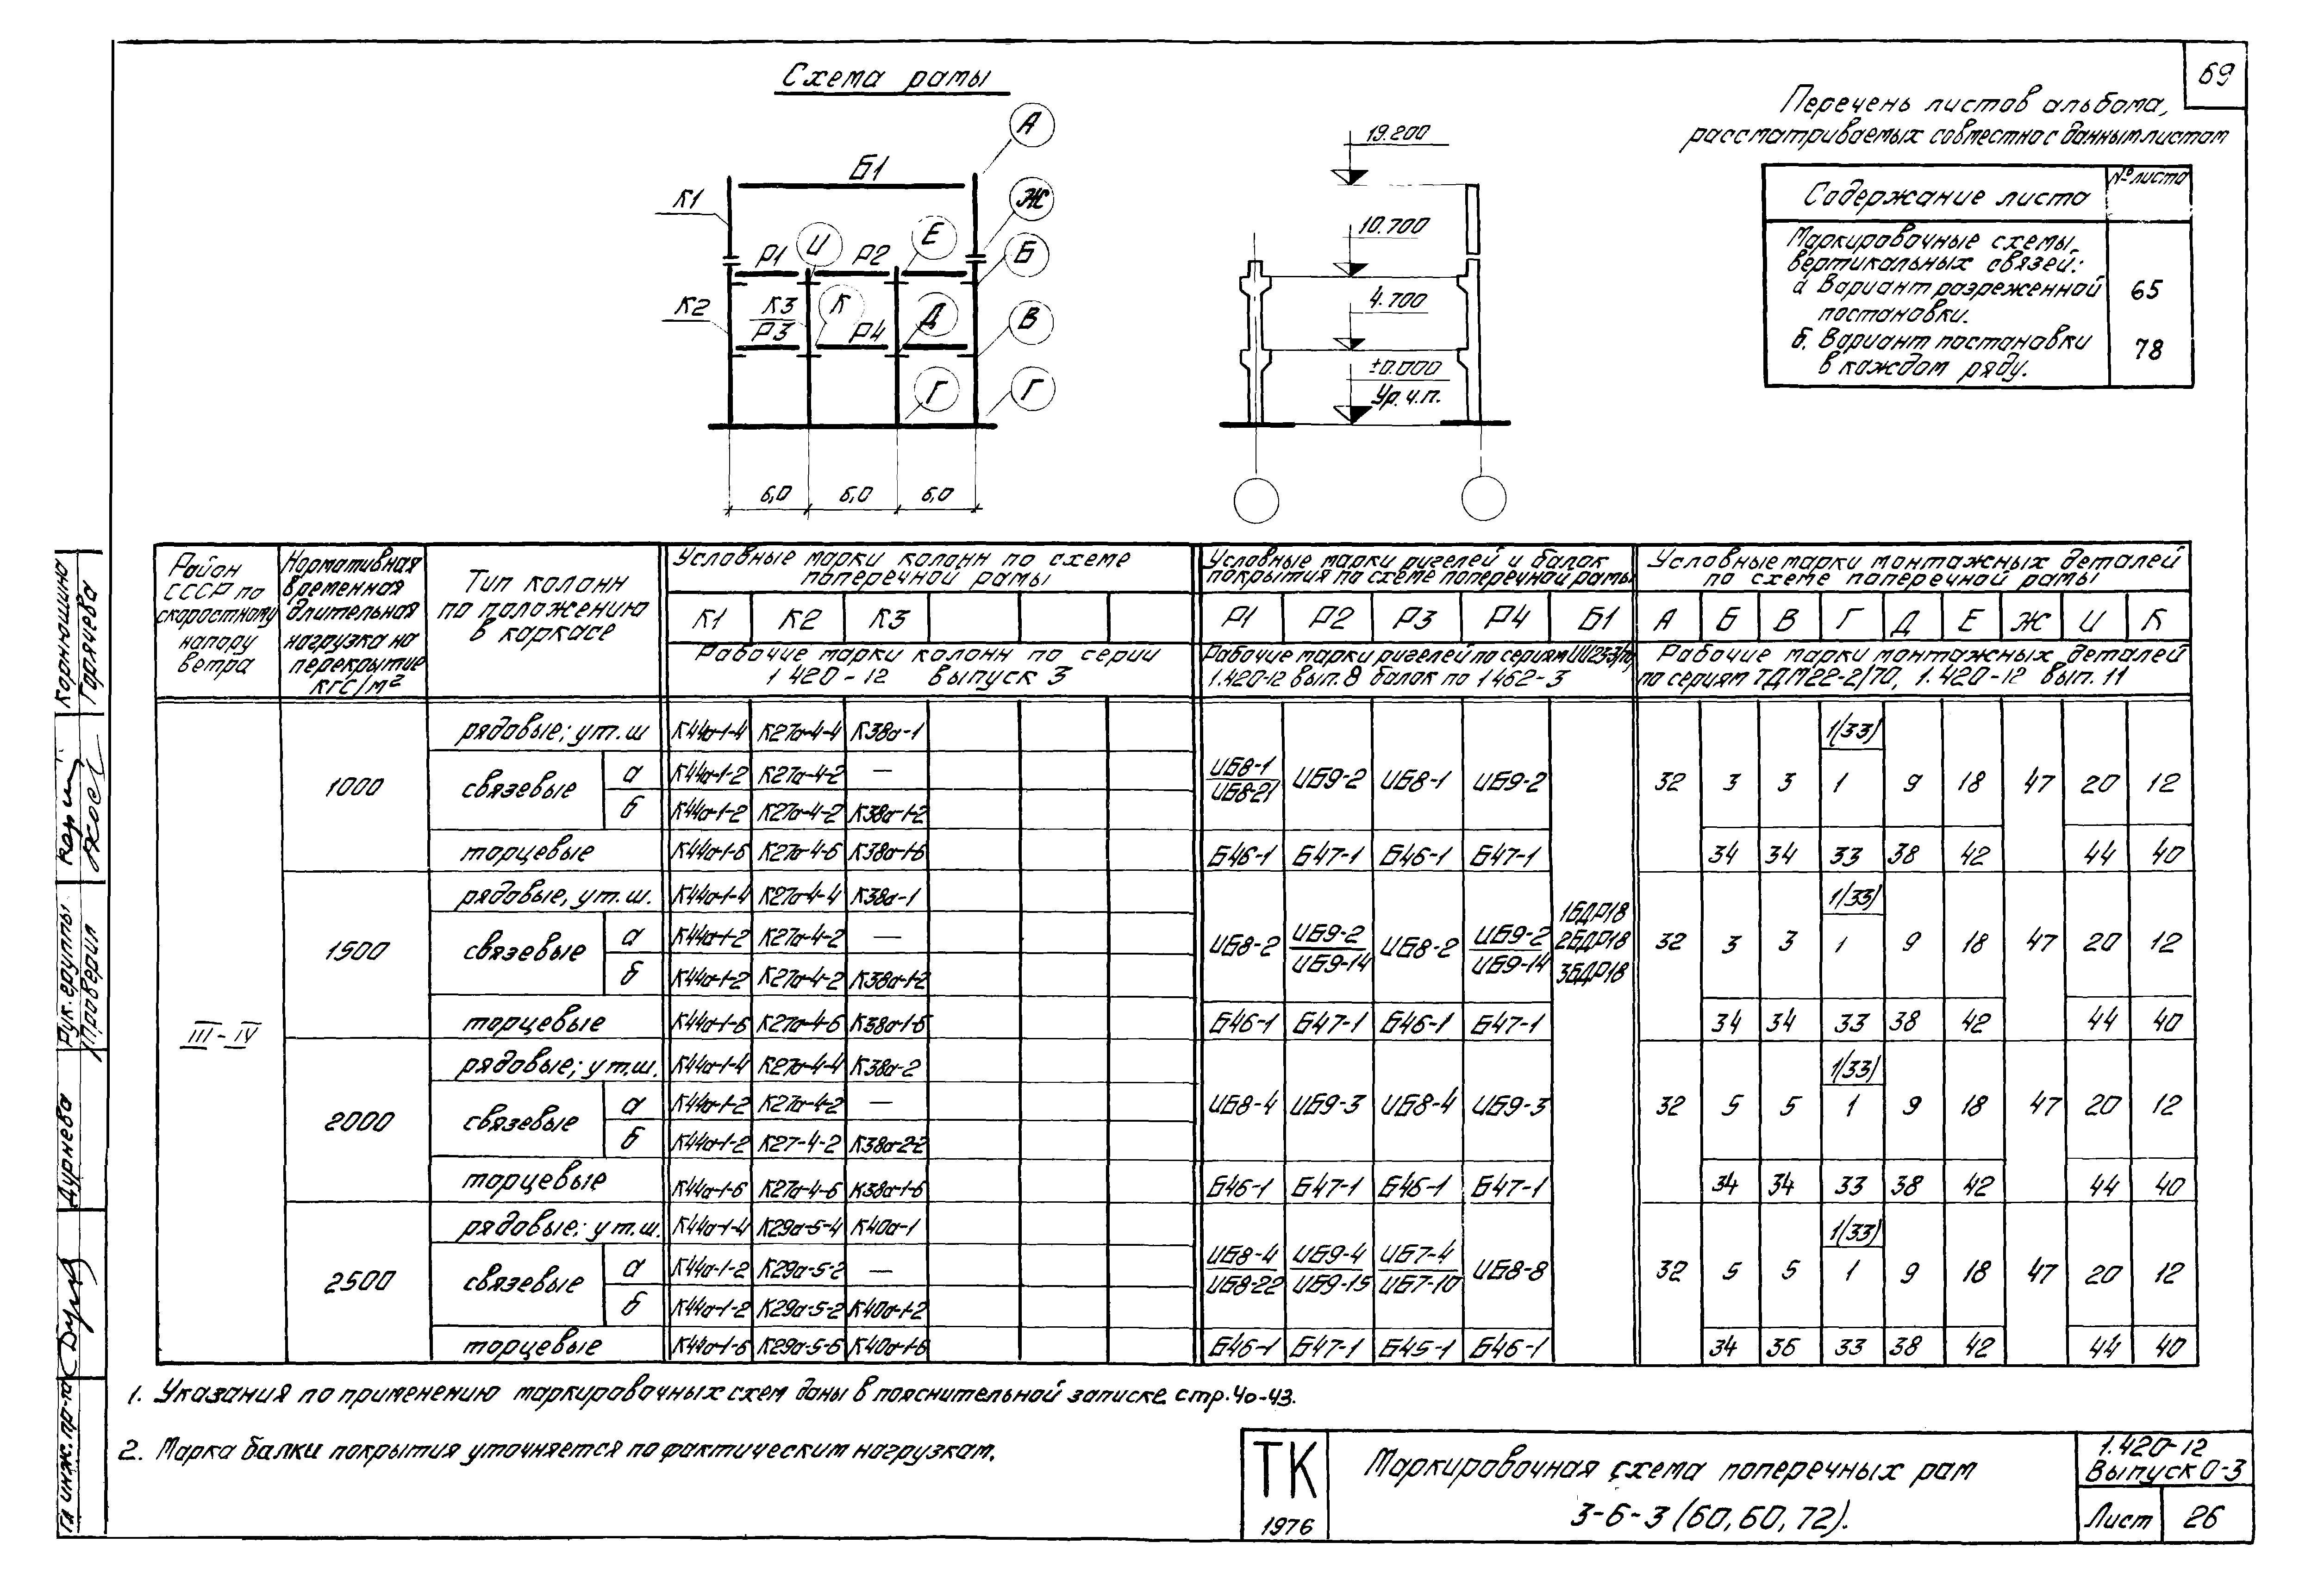 69
Схема рамы
А
Б1
Ж
К1
И
Е
Р1
Р2
Б
К2
К3
К
Р3
Р4
Д
В
Г
Г
6,0
6,0
6,0
19.200
10.700
4.700
±0.000
Ур.ч.п.
Перечень листов альбома,
рассматриваемых совместно с данным листом
Содержание листа
№ листа
Маркировочные схемы
вертикальных связей:
а Вариант разреженной
постановки.
65
б. Вариант постановки
в каждом ряду.
78
Район СССР по скоростному напору ветра
Нормативная временная длительная нагрузка на перекрытие кгс/м²
Тип колонн по положению в каркасе
Условные марки колонн по схеме поперечной рамы
Условные марки ригелей и балок покрытия по схеме поперечной рамы
Условные марки монтажных деталей по схеме поперечной рамы
К1 К2 К3
Р1 Р2 Р3 Р4 Б1
А Б В Г Д Е Ж И К
Рабочие марки колонн по серии 1 420-12 выпуск 3
Рабочие марки ригелей по сериям ИИ23-3/70 1.420-12 вып. 8 балок по 1 462-3
Рабочие марки монтажных деталей по сериям ТДМ22-2/70, 1.420-12 вып. 11
III-IV
1000
рядовые; у т.ш К44а-1-4 К27а-4-4 К38а-1 1(33)
связевые а К44а-1-2 К27а-4-2 —
б К44а-1-2 К27а-4-2 К38а-1-2
ИБ8-1 ИБ8-21 ИБ9-2 ИБ8-1 ИБ9-2 32 3 3 1 9 18 47 20 12
торцевые К44а-1-6 К27а-4-6 К38а-1-6 Б46-1 Б47-1 Б46-1 Б47-1 34 34 33 38 42 44 40
1500
рядовые, у т.ш. К44а-1-4 К27а-4-4 К38а-1 1(33)
связевые а К44а-1-2 К27а-4-2 —
б К44а-1-2 К27а-4-2 К38а-1-2
ИБ8-2 ИБ9-2 ИБ9-14 ИБ8-2 ИБ9-2 ИБ9-14 32 3 3 1 9 18 47 20 12
1БДР18
2БДР18
3БДР18
торцевые К44а-1-6 К27а-4-6 К38а-1-6 Б46-1 Б47-1 Б46-1 Б47-1 34 34 33 38 42 44 40
2000
рядовые; у т.ш. К44а-1-4 К27а-4-4 К38а-2 1(33)
связевые а К44а-1-2 К27а-4-2 —
б К44а-1-2 К27-4-2 К38а-2-2
ИБ8-4 ИБ9-3 ИБ8-4 ИБ9-3 32 5 5 1 9 18 47 20 12
торцевые К44а-1-6 К27а-4-6 К38а-1-6 Б46-1 Б47-1 Б46-1 Б47-1 34 34 33 38 42 44 40
2500
рядовые; у т.ш. К44а-1-4 К29а-5-4 К40а-1 1(33)
связевые а К44а-1-2 К29а-5-2 —
б К44а-1-2 К29а-5-2 К40а-1-2
ИБ8-4 ИБ8-22 ИБ9-4 ИБ9-15 ИБ7-4 ИБ7-10 ИБ8-8 32 5 5 1 9 18 47 20 12
торцевые К44а-1-6 К29а-5-6 К40а-1-6 Б46-1 Б47-1 Б45-1 Б46-1 34 36 33 38 42 44 40
1. Указания по применению маркировочных схем даны в пояснительной записке стр. 40-43.
2. Марка балки покрытия уточняется по фактическим нагрузкам.
ТК
1976
Маркировочная схема поперечных рам
3-6-3 (60, 60, 72).
1.420-12
Выпуск 0-3
Лист 26
Гл инж. пр-та
Дурнева
Рук. группы
Корнюшина
Проверил
Горячева